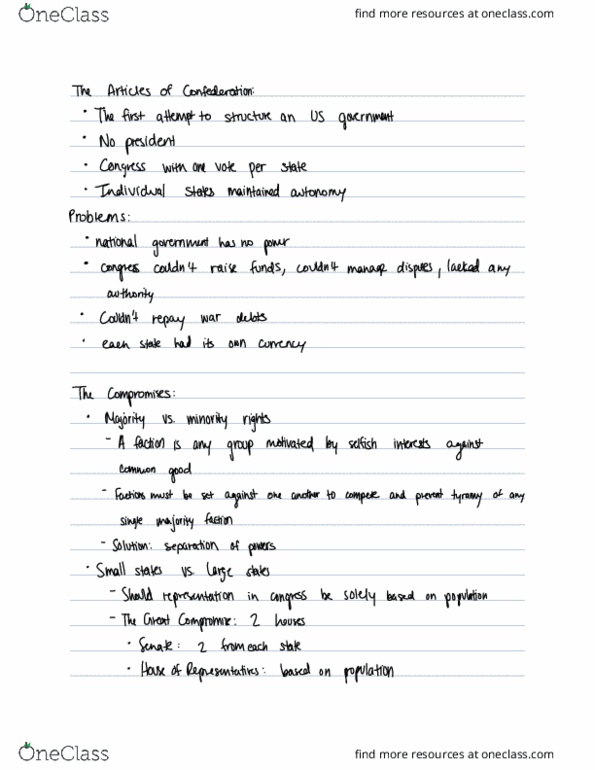 OneClass
find more resources at oneclass.com
The Articles of Confederation:
• The first attempt to structure an US government
• No president
• Congress with one vote per state
• Individual states maintained autonomy
Problems:
• national government has no power
• congress couldn't raise funds, couldn't manage disputes, lacked any
authority
• Couldn't repay war debts
• each state had its own currency
The Compromises:
• Majority vs. minority rights
- A faction is any group motivated by selfish interests against
common good
- Factions must be set against one another to compete and prevent tyranny of any
single majority faction
- Solution: separation of powers
• Small states vs. Large states
- Should representation in congress be solely based on population
- The Great Compromise: 2 houses
• Senate: 2 from each state
• House of Representatives: based on population
OneClass
find more resources at oneclass.com